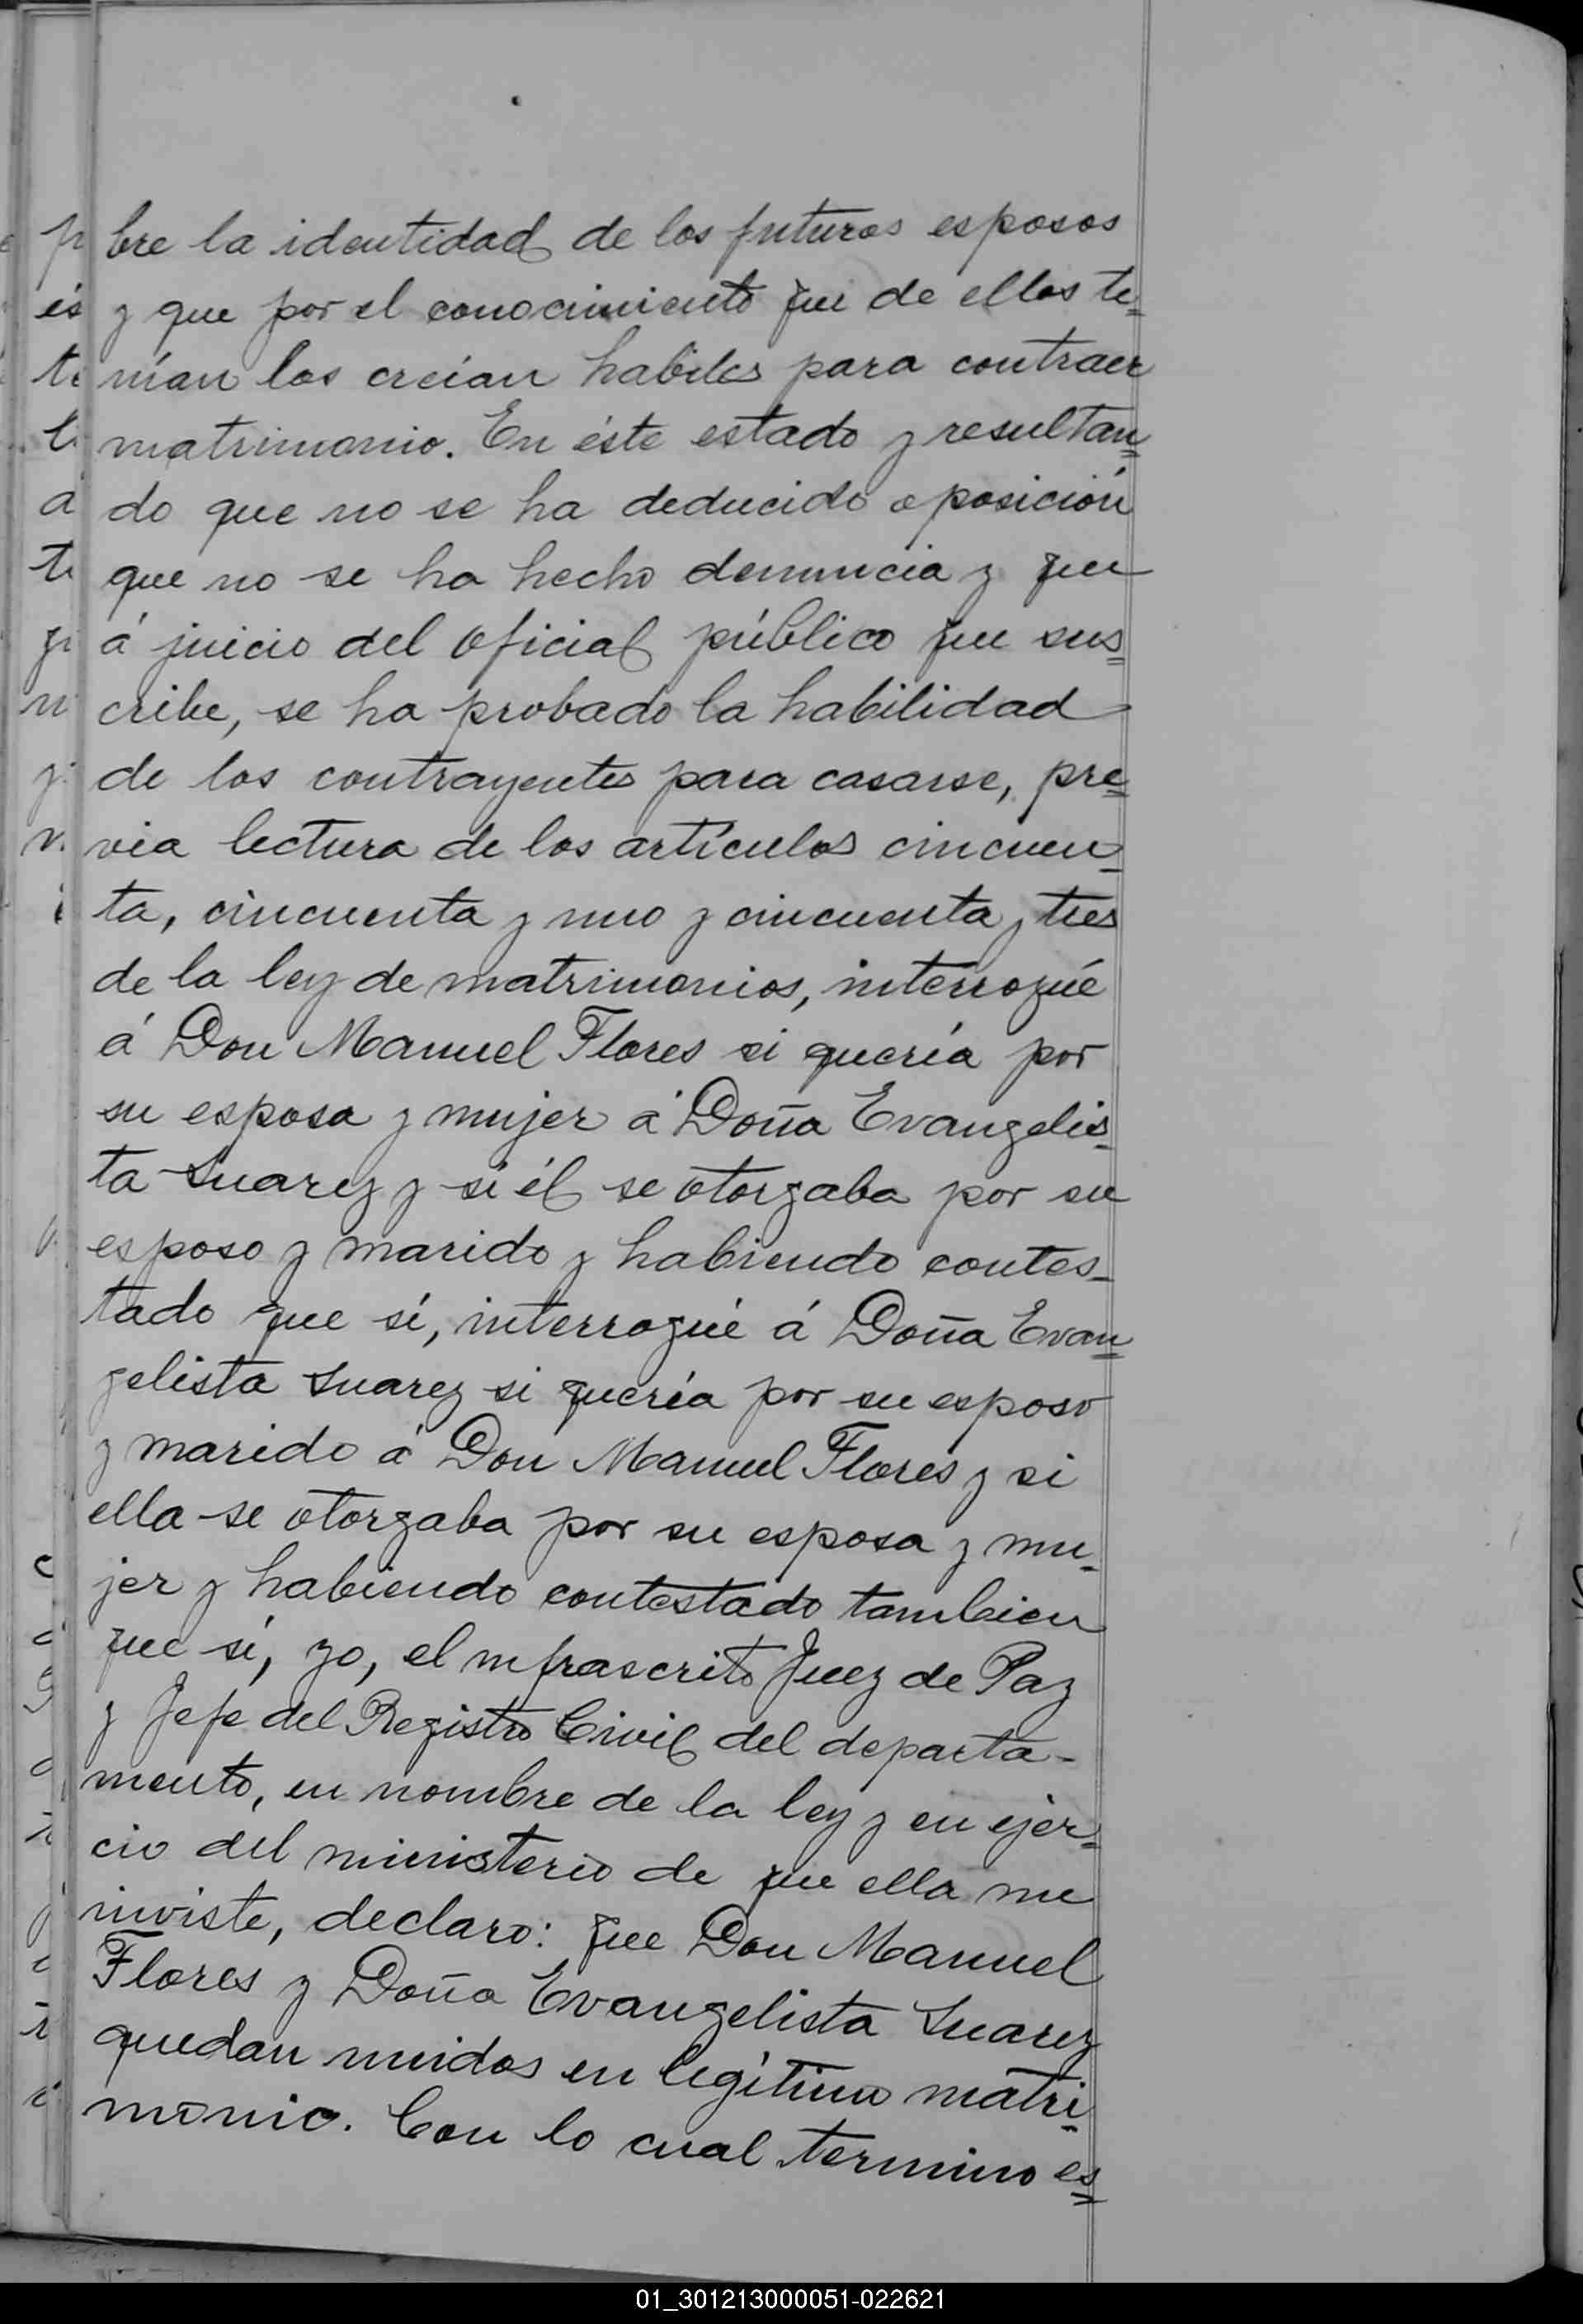 bre la identidad de los futuros esposos
y que por el conocimiento que de ellos te=
nían los creían habiles para contraer
matrimonio. En éste estado y resultan=
do que no se ha deducido oposición
que no se ha hecho denuncia y que
á juicio del oficial público que sus=
cribe, se ha probado la habilidad
de los contrayentes para casarse, pre=
via lectura de los artículos cincuen-
ta, cincuenta y uno y cincuenta y tres
de la ley de matrimonios, interrogué
á Don Manuel Flores si quería por
su esposa y mujer á Doña Evangelis=
ta Suarez y si él se otorgaba por su
esposo y marido y habiendo contes-
tado que sí, interrogué á Doña Evan=
gelista Suarez si quería por su esposo
y marido á Don Manuel Flores y si
ella se otorgaba por su esposa y mu-
jer y habiendo contestado tambien
que sí, yo, el infrascrito Juez de Paz
y Jefe del Registro Civil del departa-
mento, en nombre de la ley y en ejer=
cio del ministerio de que ella me
inviste, declaro: que Don Manuel
Flores y Doña Evangelista Suarez
quedan unidos en legítimo matri-
monio. Con lo cual termino es=
01_301213000051-022621